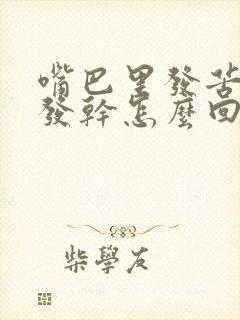 嘴巴里發苦
發幹怎麼回
柴學友